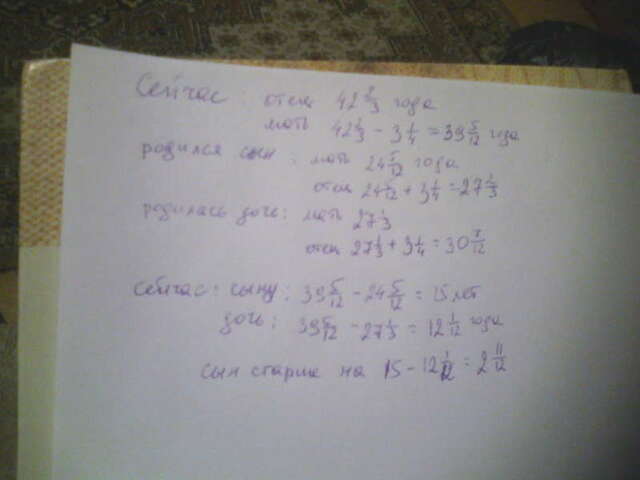 Сейчас: отец 42 2/3 года
мать 42 2/3 - 3 1/4 = 39 5/12 года
родился сын: мать 24 5/12 года
отец 24 5/12 + 3 1/4 = 27 2/3
родилась дочь: мать 27 1/3
отец 27 1/3 + 3 1/4 = 30 7/12
Сейчас: сыну: 39 5/12 - 24 5/12 = 15 лет
дочь: 39 5/12 - 27 1/3 = 12 1/12 года
сын старше на 15 - 12 1/12 = 2 11/12